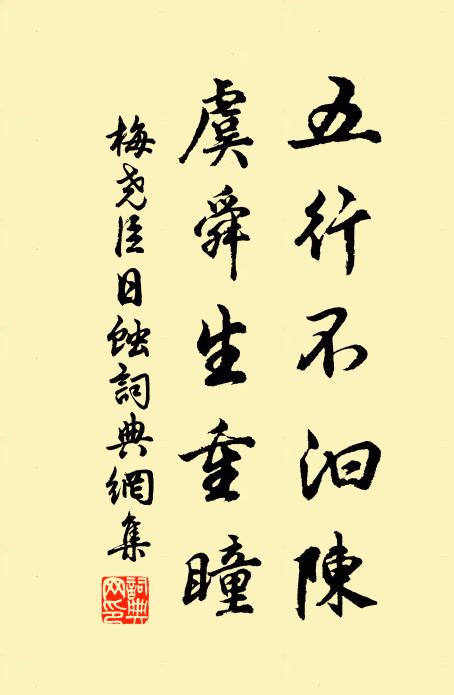 五行不汩陳
虞舜生重瞳
梅堯臣日蝕詞典網集
詞典網印